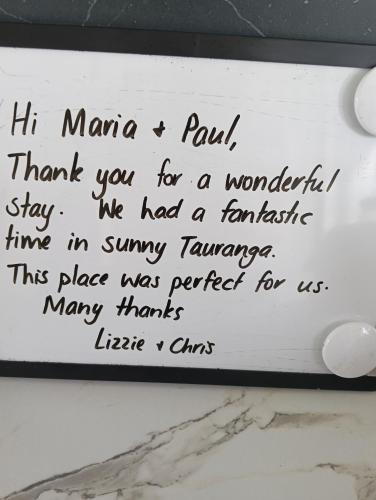 Hi Maria + Paul,
Thank you for a wonderful
stay. We had a fantastic
time in sunny Tauranga.
This place was perfect for us.
Many thanks
Lizzie + Chris